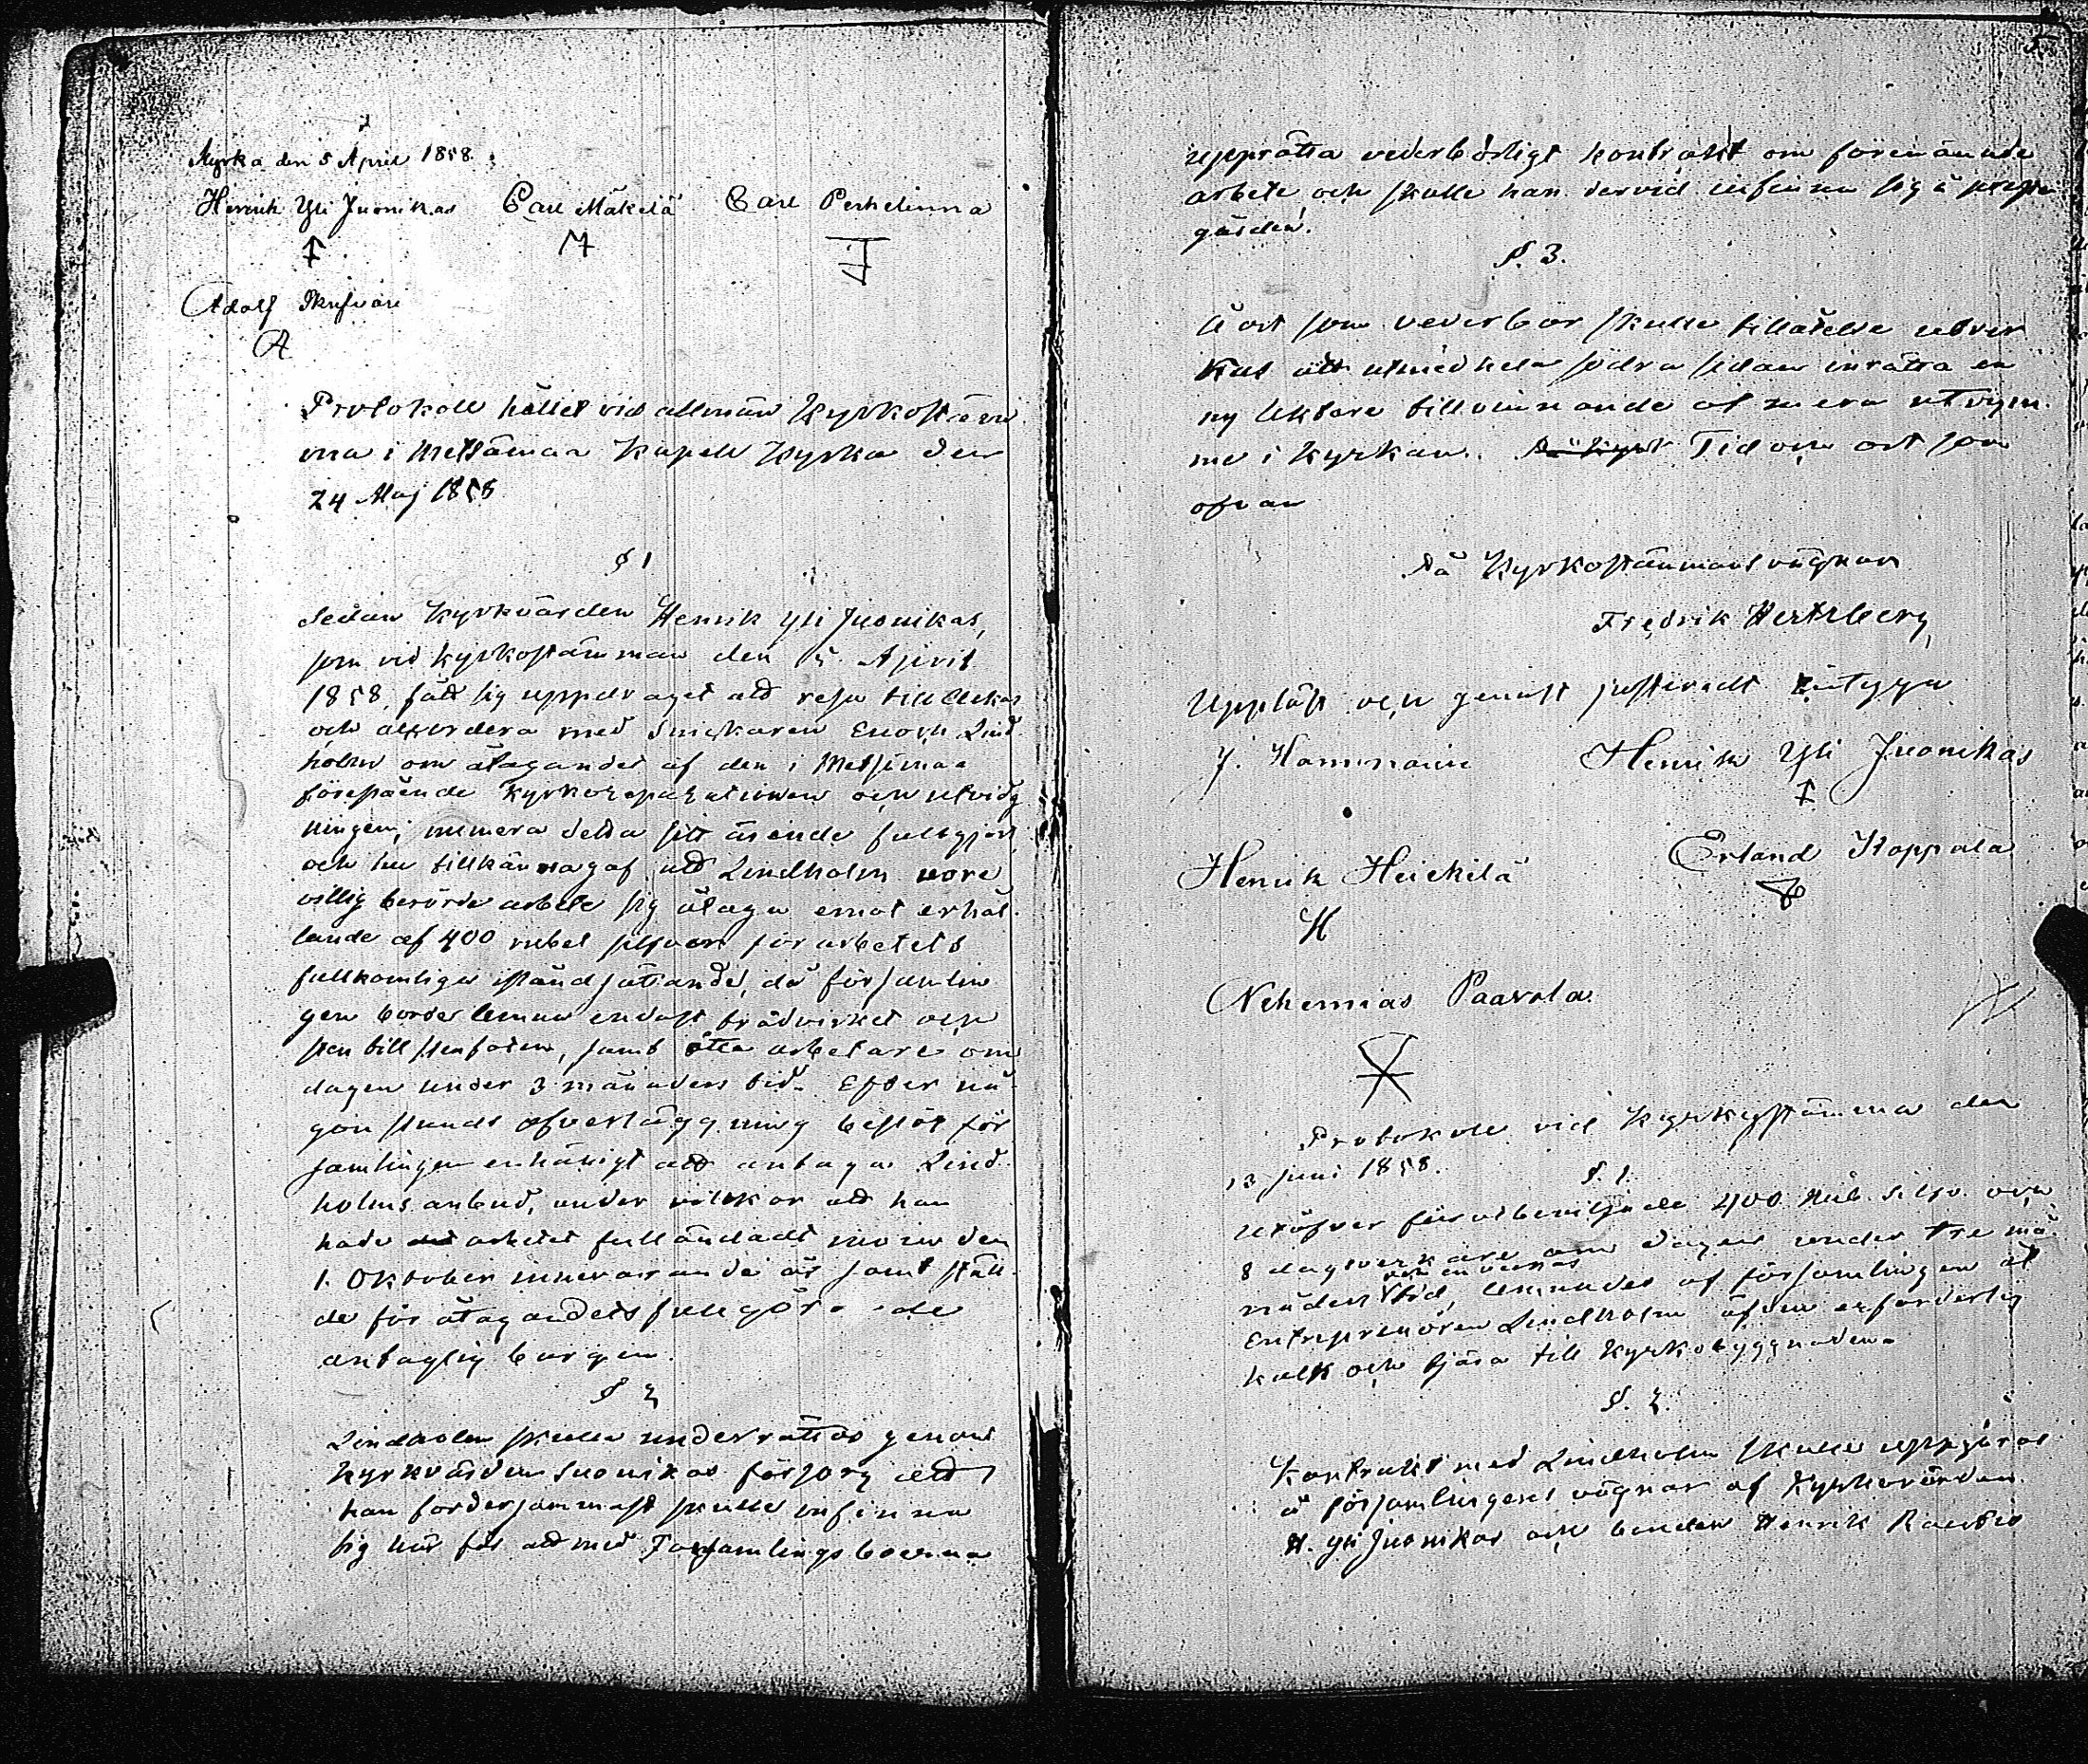 Kyrka den 5 April 1858.
Henrik Yli Juonikas Carl Mäkelä Carl Perhelinna
Adolf
A
Protokoll hållet vid allmän Kyrkostäm
ma i Metsämaa Kapell Kyrka den
24 Maj 1858
§ 1
Sedan Kyrkvärden Henrik Yli Juonikas,
som vid kyrkostämman den 5 April
1858, fått sig uppdraget att resa till
och accordera med Snickaren Enoch Lind
holm om åtagandet af den i Metsämaa
förestående kyrkoreparationen och utvidg
ningen, numera detta sitt ärende fullgjort,
och nu tillkännagaf att Lindholm vore
villig berörde arbete sig åtaga emot erhål
lande af 400 rubel silfver för arbetets
fullkomliga iståndsättande, då församlin
gen borde lemna endast trädvirket och
sten till stenfoten, samt åtta arbetare om
dagen under 3 månaders tid. Efter nå
gon stunds öfverläggning beslöt för
samlingen enhäligt att antaga Lind
holms anbud, under vilkor att han
hade arbetet fulländadt inom den
1. Oktober innevarande år samt stäl
de för åtagandets fullgörande
antaglig borgen.
§ 2
Lindholm skulle underrättas genom
Kyrkvärden Juonikas försorg att
han fordersammast skulle infinna
sig här för att med Församlingsboerna
5
upprätta vederbörligt kontrakt om förenämnde
arbete och skulle han dervid infinna sig å prest
gården.
§. 3.
Å ort som vederbör skulle tillåtelse utver
kas att utmed hela södra sidan inrätta en
ny läktare till vinnande af mera utrym
me i kyrkan. Tid och ort som
ofvan
På Kyrkostämmans vägnar
Fredrik Hertzberg
Uppläst och genast justeradt intyga
J. Hammarin Henrik Yli Juonikas
Henrik Heickilä Erland Koppala
H
Nehemias Paavola
Protokoll vid Kyrkostämma den
13 Juni 1858.
§. 1.
Utöfver förut beviljade 400 Rub. Silfv. och
8 dagsverkare om dagen under tre må
och en veckas
naders tid, lemnades af församlingen åt
Entreprenören Lindholm äfven erforderlig
kalk och tjära till kyrkobyggnaden.
§. 2.
Kontrakt med Lindholm skulle uppgöras
å församlingens vägnar af Kyrkovärden
H. Yli Juonikas och bonden Henrik